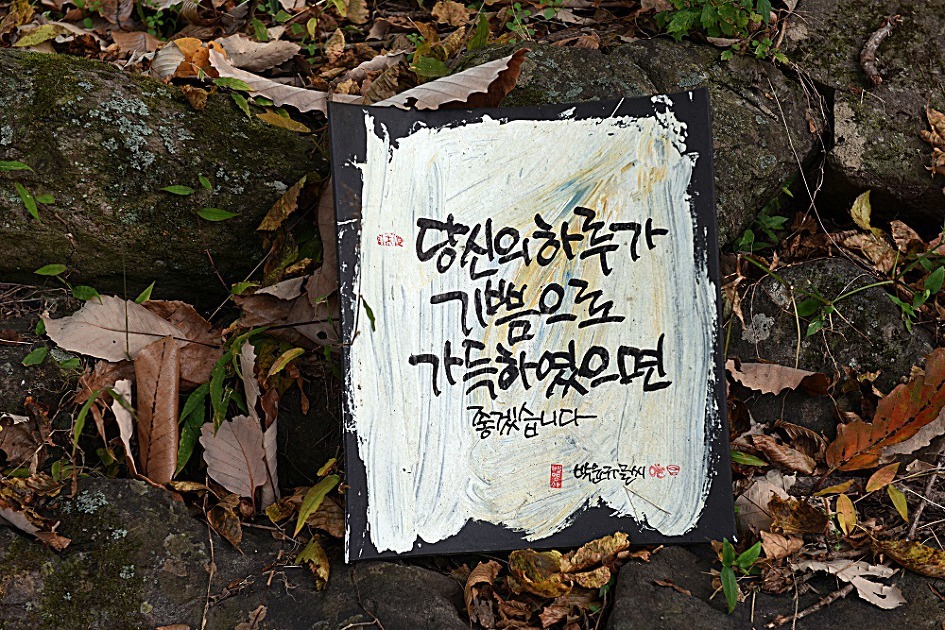 당신의 하루가
기쁨으로
가득하였으면
좋겠습니다
박윤규 글씨